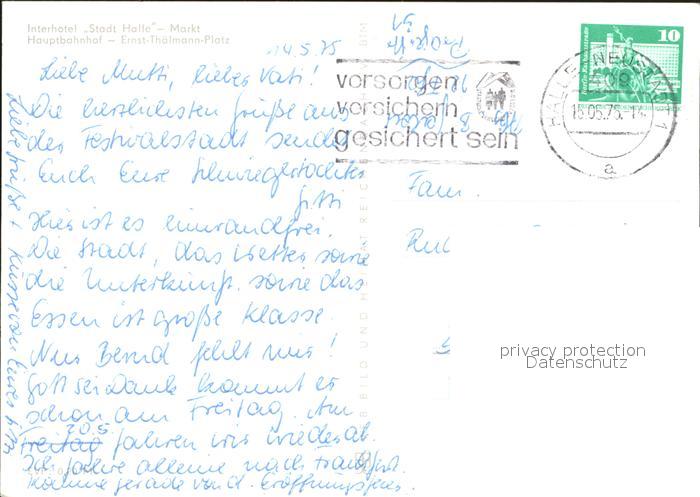 Interhotel „Stadt Halle“ — Markt
Hauptbahnhof — Ernst-Thälmann-Platz
14.5.75
Liebe Mutti, lieber Vati!
Die herzlichsten Grüße aus
der Festivalstadt sendet
Euch Eure Schwiegertochter
Gitti
Hier ist es einwandfrei.
Die Stadt, das Wetter sowie
die Unterkunft sowie das
Essen ist große Klasse.
Nur Bernd fehlt mir!
Gott sei Dank kommt er
schon am Freitag. Am
20.5.
Freitag fahren wir wieder ab.
Ich fahre alleine nach Frankfurt.
Komme gerade von d. Eröffnungsfeier.
Liebe Grüße + Küsse von Eurer
vorsorgen
versichern
gesichert sein
HALLE-NEUSTADT 1
16.05.75.-14
a
10
Fam.
privacy protection
Datenschutz